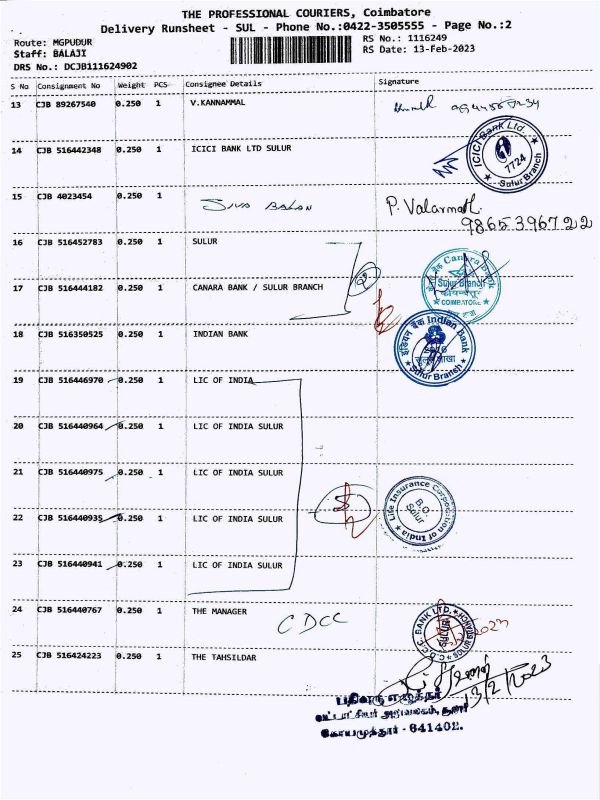 THE PROFESSIONAL COURIERS, Coimbatore
Delivery Runsheet - SUL - Phone No.:0422-3505555 - Page No.:2
Route: MGPUDUR
RS No.: 1116249
Staff: BALAJI
RS Date: 13-Feb-2023
DRS No.: DCJB111624902
S No Consignment No Weight PCS Consignee Details Signature
13 CJB 89267540 0.250 1 V.KANNAMMAL
14 CJB 516442348 0.250 1 ICICI BANK LTD SULUR
ICICI Bank Ltd.
7724
Sulur Branch
15 CJB 4023454 0.250 1 SIVA BALAN P. Valarmathi
9865396722
16 CJB 516452783 0.250 1 SULUR
17 CJB 516444182 0.250 1 CANARA BANK / SULUR BRANCH
Canara Bank
Sulur Branch
COIMBATORE
18 CJB 516350525 0.250 1 INDIAN BANK
इंडियन बैंक Indian Bank
शाखा
Sulur Branch
19 CJB 516446970 0.250 1 LIC OF INDIA
20 CJB 516440964 0.250 1 LIC OF INDIA SULUR
21 CJB 516440975 0.250 1 LIC OF INDIA SULUR
22 CJB 516440935 0.250 1 LIC OF INDIA SULUR
Life Insurance Corporation of India
B.O.
Sulur
23 CJB 516440941 0.250 1 LIC OF INDIA SULUR
24 CJB 516440767 0.250 1 THE MANAGER CDCC
C.D.C.C. BANK LTD.
25 CJB 516424223 0.250 1 THE TAHSILDAR
13/2/2023
வட்டாட்சியர் அலுவலகம், சூலூர்
கோயமுத்தூர் - 641402.